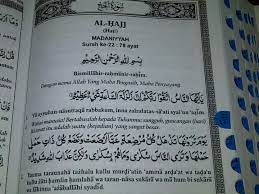 سُورَةُ الْحَجِّ
AL-ḤAJJ
(Haji)
MADANIYYAH
Surah ke-22 : 78 ayat
بِسْمِ اللَّهِ الرَّحْمَٰنِ الرَّحِيمِ
Bismillāhir-raḥmānir-raḥīm.
Dengan nama Allah Yang Maha Pengasih, Maha Penyayang.
يَا أَيُّهَا النَّاسُ اتَّقُوا رَبَّكُمْ إِنَّ زَلْزَلَةَ السَّاعَةِ شَيْءٌ عَظِيمٌ
Yā ayyuhan-nāsuttaqū rabbakum, inna zalzalatas-sā'ati syai'un 'aẓīm.
manusia! Bertakwalah kepada Tuhanmu; sungguh, guncangan (hari)
itu adalah suatu (kejadian) yang sangat besar.
يَوْمَ تَرَوْنَهَا تَذْهَلُ كُلُّ مُرْضِعَةٍ عَمَّا أَرْضَعَتْ وَتَضَعُ كُلُّ ذَاتِ
حَمْلٍ حَمْلَهَا وَتَرَى النَّاسَ سُكَارَىٰ وَمَا هُمْ بِسُكَارَىٰ وَلَٰكِنَّ
عَذَابَ اللَّهِ شَدِيدٌ
taraunahā tażhalu kullu murḍi'atin 'ammā arḍa'at wa taḍa'u
kullu żāti ḥamlin ḥamlahā wa taran-nāsa sukārā wa mā hum bi sukārā
'ażāballāhi syadīd.